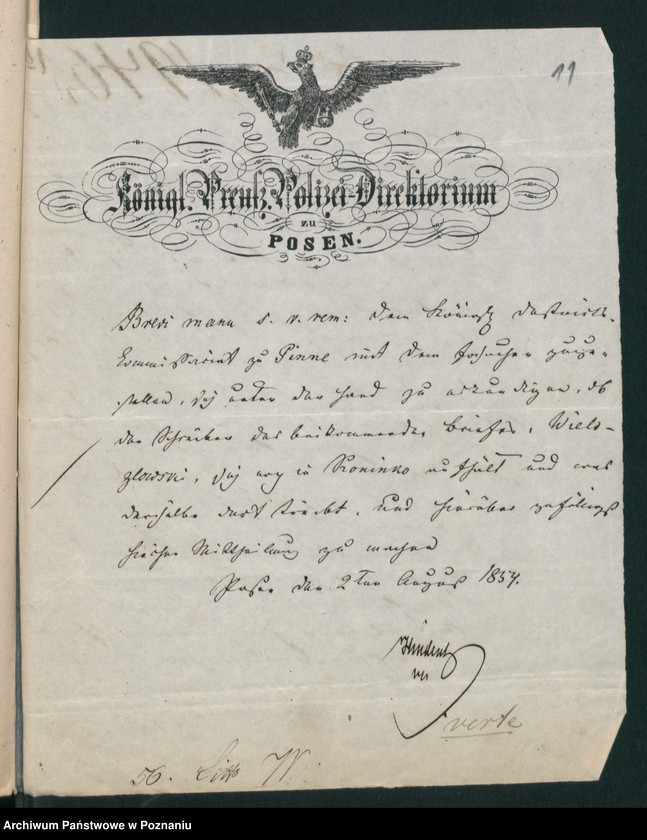 11
Königl. Preuß. Polizei-Direktorium
zu
POSEN.
Brevi manu s. v. rem: dem Königl Distrikts-
Kommissariat zu Pinne mit dem Ersuchen zuzu-
stellen, sich unter der Hand zu erkundigen, ob
der Schreiber des beikommenden Briefes, Wiels-
glowski, sich noch in Koninko aufhält und was
derselbe dort treibt, und hierüber gefälligst
hierher Mittheilung zu machen
Posen den 2ten August 1854.
verte
56. Citto W.
Archiwum Państwowe w Poznaniu